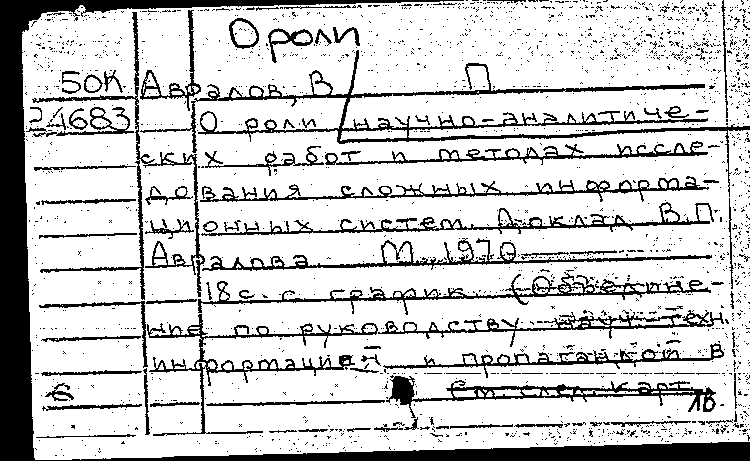 О роли
50К Авралов, В П
24683 О роли научно-аналитиче-
ских работ и методах иссле-
дования сложных информа-
ционных систем. Доклад В.П.
Авралова. М., 1970
18 с. с график. (Объедине-
ние по руководству науч.-техн.
информацией и пропагандой в
См. след. карт.